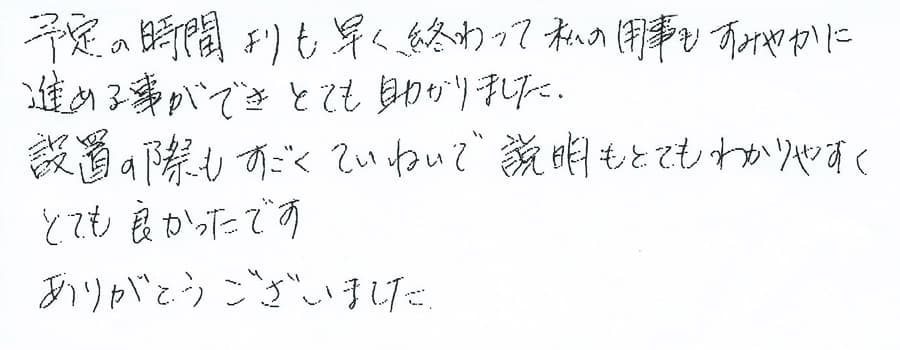 予定の時間よりも早く終わって私の用事もすみやかに
進める事ができとても助かりました.
設置の際もすごくていねいで説明もとてもわかりやすく
とても良かったです
ありがとうございました